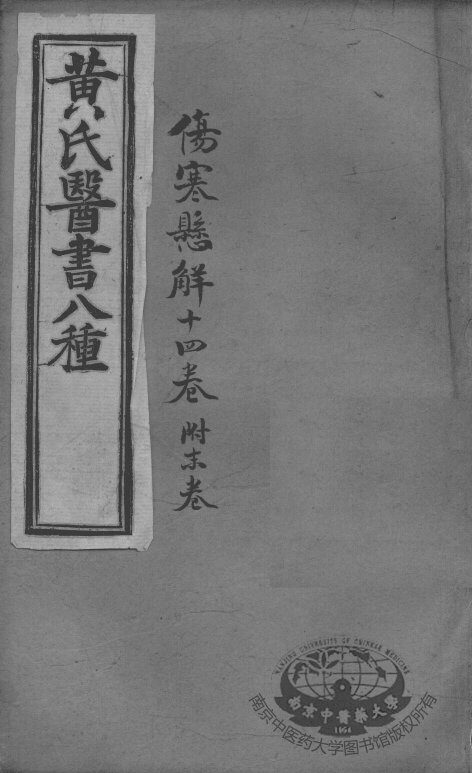 黃氏醫書八種
傷寒懸解十四卷 附末卷
NANJING UNIVERSITY OF CHINESE MEDICINE
南京中醫藥大學
1954
南京中医药大学图书馆版权所有